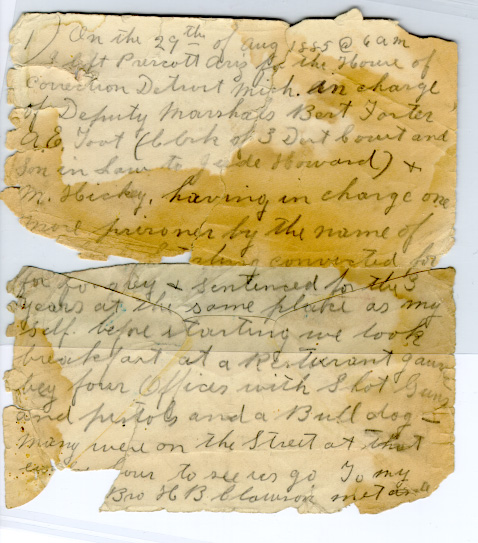 1) On the 29th of Aug 1885 @ 6 am
I left Prescott Aris for the House of
Correction Detroit Mich. in charge
of Deputy Marshals Bert Forter
A. E. Foot (Clerk of 3 Dist Court and
Son in Law to Jude Howard) +
M. Hickey, having in charge one
more prisoner by the name of
convected for
for + sentenced for the 3
years at the same place as my
self. before starting we took
breakfast at a Resturant
bey four Offices with Shot Guns
and pistols and a Bull dog -
Many were on the Street at that
our to see us go To my
Bro H B Clawson met